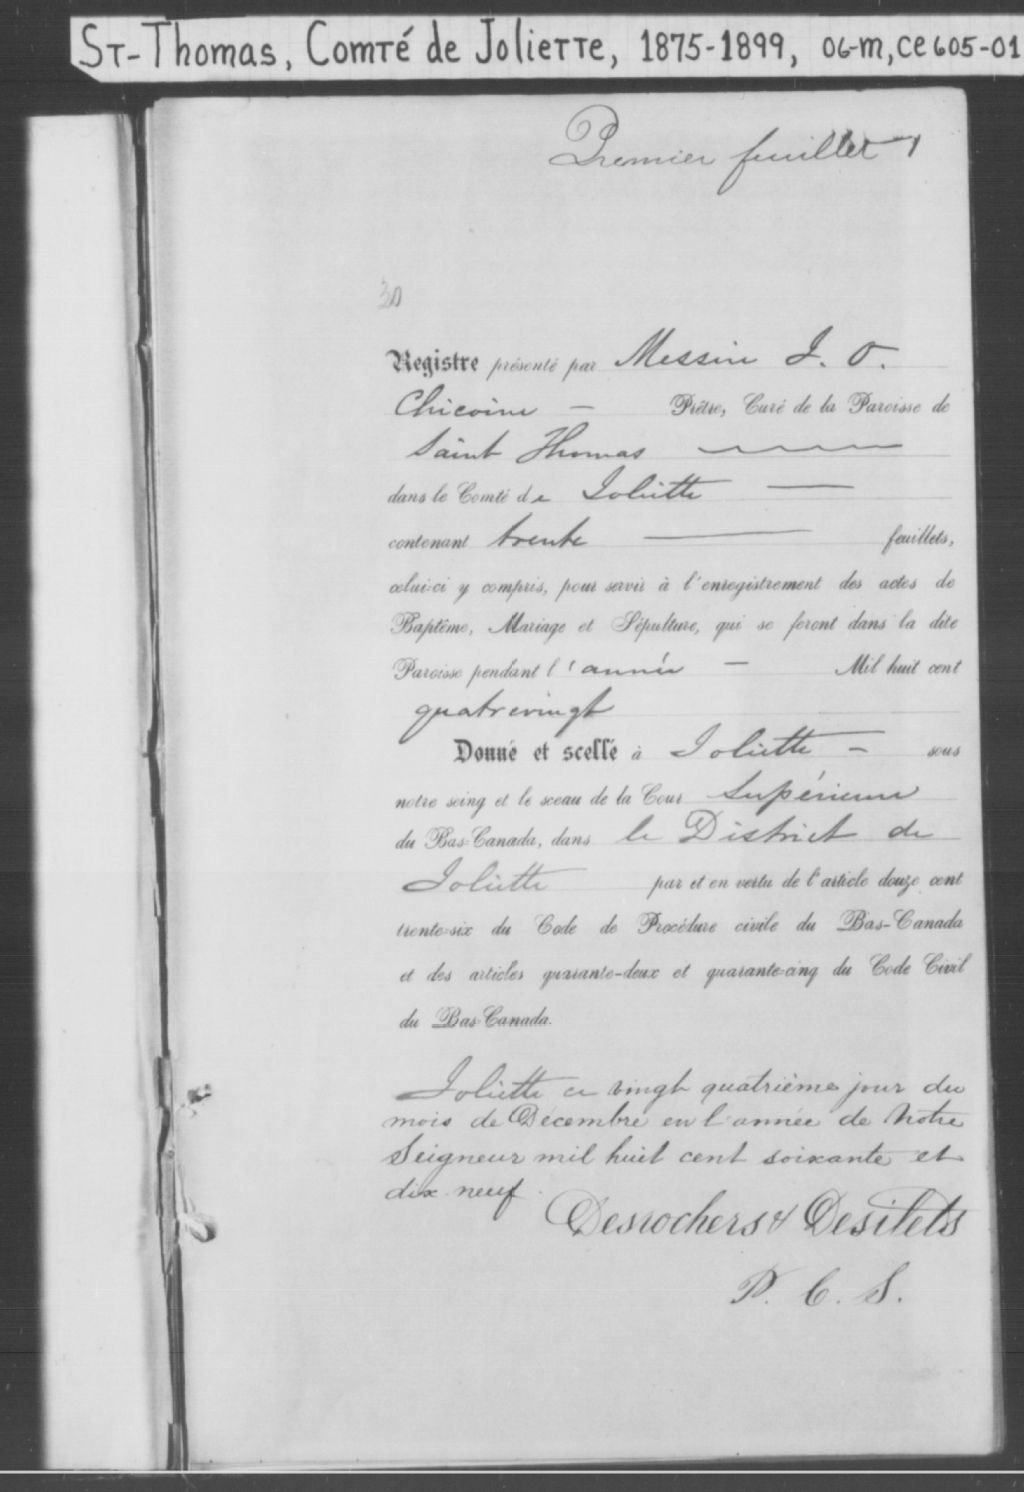 St-Thomas, Comté de Joliette, 1875-1899, 06-M, CE605-01
Premier feuillet
30
Registre présenté par Messire J. O.
Chicoine – Prêtre, Curé de la Paroisse de
Saint Thomas
dans le Comté de Joliette —
contenant trente — feuillets,
celui-ci y compris, pour servir à l'enregistrement des actes de
Baptême, Mariage et Sépulture, qui se feront dans la dite
Paroisse pendant l'année – Mil huit cent
quatrevingt
Donné et scellé à Joliette – sous
notre seing et le sceau de la Cour Supérieure
du Bas-Canada, dans le District de
Joliette par et en vertu de l'article douze cent
trente-six du Code de Procédure civile du Bas-Canada
et des articles quarante-deux et quarante-cinq du Code Civil
du Bas-Canada.
Joliette ce vingt quatrième jour du
mois de Décembre en l'année de Notre
Seigneur mil huit cent soixante et
dix-neuf.
Desrochers & Desilets
P. C. S.